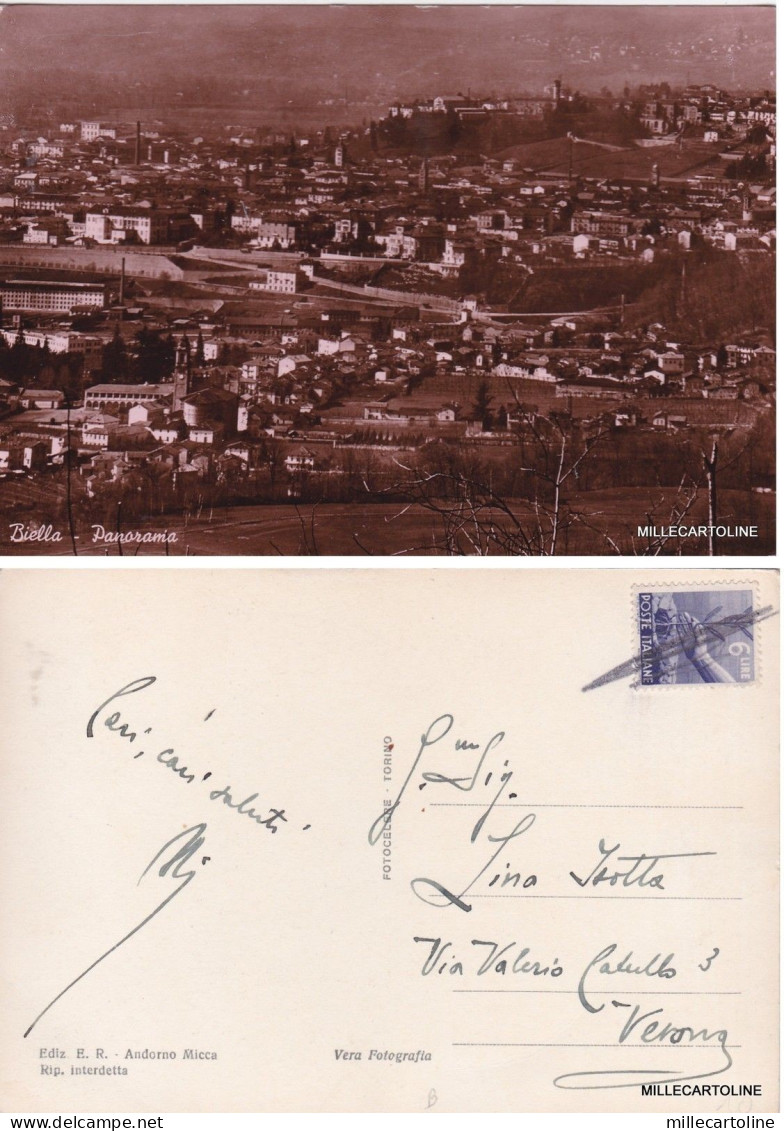 Biella - Panorama
MILLECARTOLINE
POSTE ITALIANE
6 LIRE
Cari, cari saluti
FOTOCELERE - TORINO
G.ma Sig.
Lina Isotta
Via Valerio Catullo 3
Verona
Ediz. E. R. - Andorno Micca
Rip. interdetta
Vera Fotografia
B
MILLECARTOLINE
https://www.delcampe.net
millecartoline